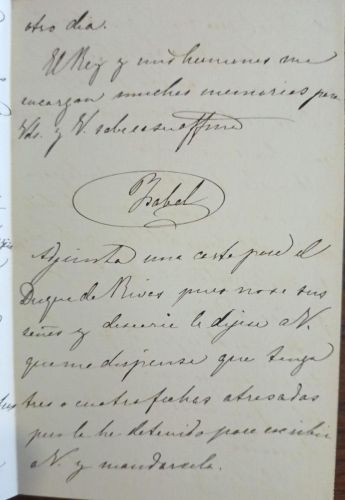 otro dia.
El Rey y mis hermanos me
encargan muchas memorias para
Vds. y V. sabe es su affma
Isabel
Adjunta una carta para el
Duque de Rivas pues no se sus
señas y desearia le dijese a V.
que me dispense que tenga
tres o cuatro fechas atrasadas
pues la he detenido para escribir
a V. y mandarsela.